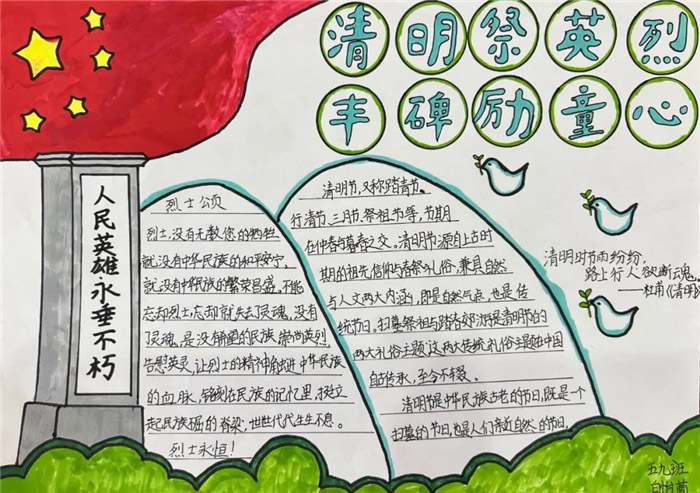 清明祭英烈
丰碑励童心
人民英雄永垂不朽
烈士颂
烈士,没有无数您的牺牲
就没有中华民族的和平安宁,
就没有中华民族的繁荣昌盛,不能
忘却烈士,忘却就失去了灵魂,没有
了灵魂,是没有希望的民族,崇尚英烈,
告慰英灵,让烈士的精神融进中华民族
的血脉,铭刻在民族的记忆里,挺立
起民族的脊梁,世世代代生生不息。
烈士永恒!
清明节,又称踏青节。
行清节、三月节、祭祖节等,节期
在仲春与暮春之交。清明节源自上古时
期的祖先信仰与春祭礼俗,兼具自然
与人文两大内涵,即是自然节气点,也是传
统节日。扫墓祭祖与踏春郊游是清明节的
两大礼俗主题,这两大传统礼俗主题在中国
自古传承,至今不辍。
清明节是中华民族古老的节日,既是一个
扫墓的节日,也是人们亲近自然的节日.
清明时节雨纷纷,
路上行人欲断魂。
——杜甫《清明》
五九班
白